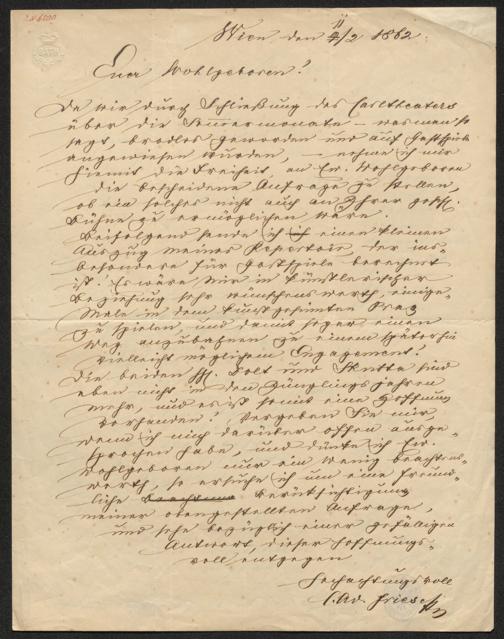 Wien den 4/2 1862.
Euer Wohlgeboren!
Da wir durch Schließung des Carltheaters
über die Sommermonate – was man so
sagt, brodlos geworden und auf Gastspiele
angewiesen wurden, – nehme ich mir
hiemit die Freiheit, an Ew. Wohlgeboren
die bescheidene Anfrage zu stellen,
ob ein solches nicht auch an Ihrer gesch.
Bühne zu ermöglichen wäre.
Beifolgend sende ich einen kleinen
Auszug meines Repertoir der ins-
besondere für Gastspiele berechnet
ist. Es wäre mir in künstlerischer
Beziehung sehr wünschenswerth, einige
Male in dem kunstgesinnten Prag
zu spielen, und damit sogar einen
Weg anzubahnen zu einem späterhin
vielleicht möglichem Engagement!
Die beiden HH. Dolt und Skutta sind
eben nicht in den Jünglings Jahren
mehr, und es ist somit eine Hoffnung
vorhanden! Vergeben Sie mir,
wenn ich mich darüber offen ausge-
sprochen habe, und dünke ich Ew.
Wohlgeboren nur ein wenig beachtens-
werth, so ersuche ich um eine freund-
liche Berücksichtigung
meiner obengestellten Anfrage,
und sehe bezüglich einer gefälligen
Antwort, dieser hoffnungs-
voll entgegen
Hochachtungsvoll
C. Ad. Friese